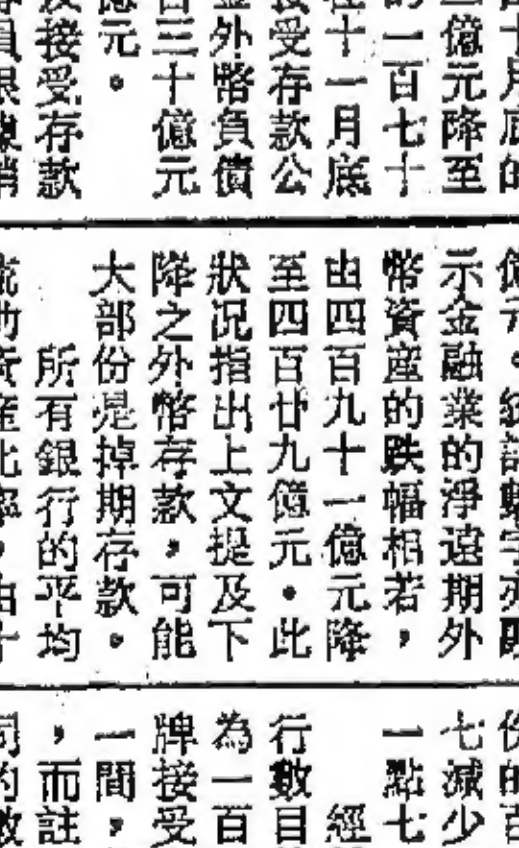 億元降至
的一百七十
在十一月底
接受存款公
金外幣負債
百三十億元
億元。
接受存款
示金融業的淨遠期外
幣資産的跌幅相若，
由四百九十一億元降
至四百廿九億元。此
狀况指出上文提及下
降之外幣存款，可能
大部份是掉期存款。
所有銀行的平均
七減少
一點七
經
行數目
為一百
牌接受
一間，
，而註